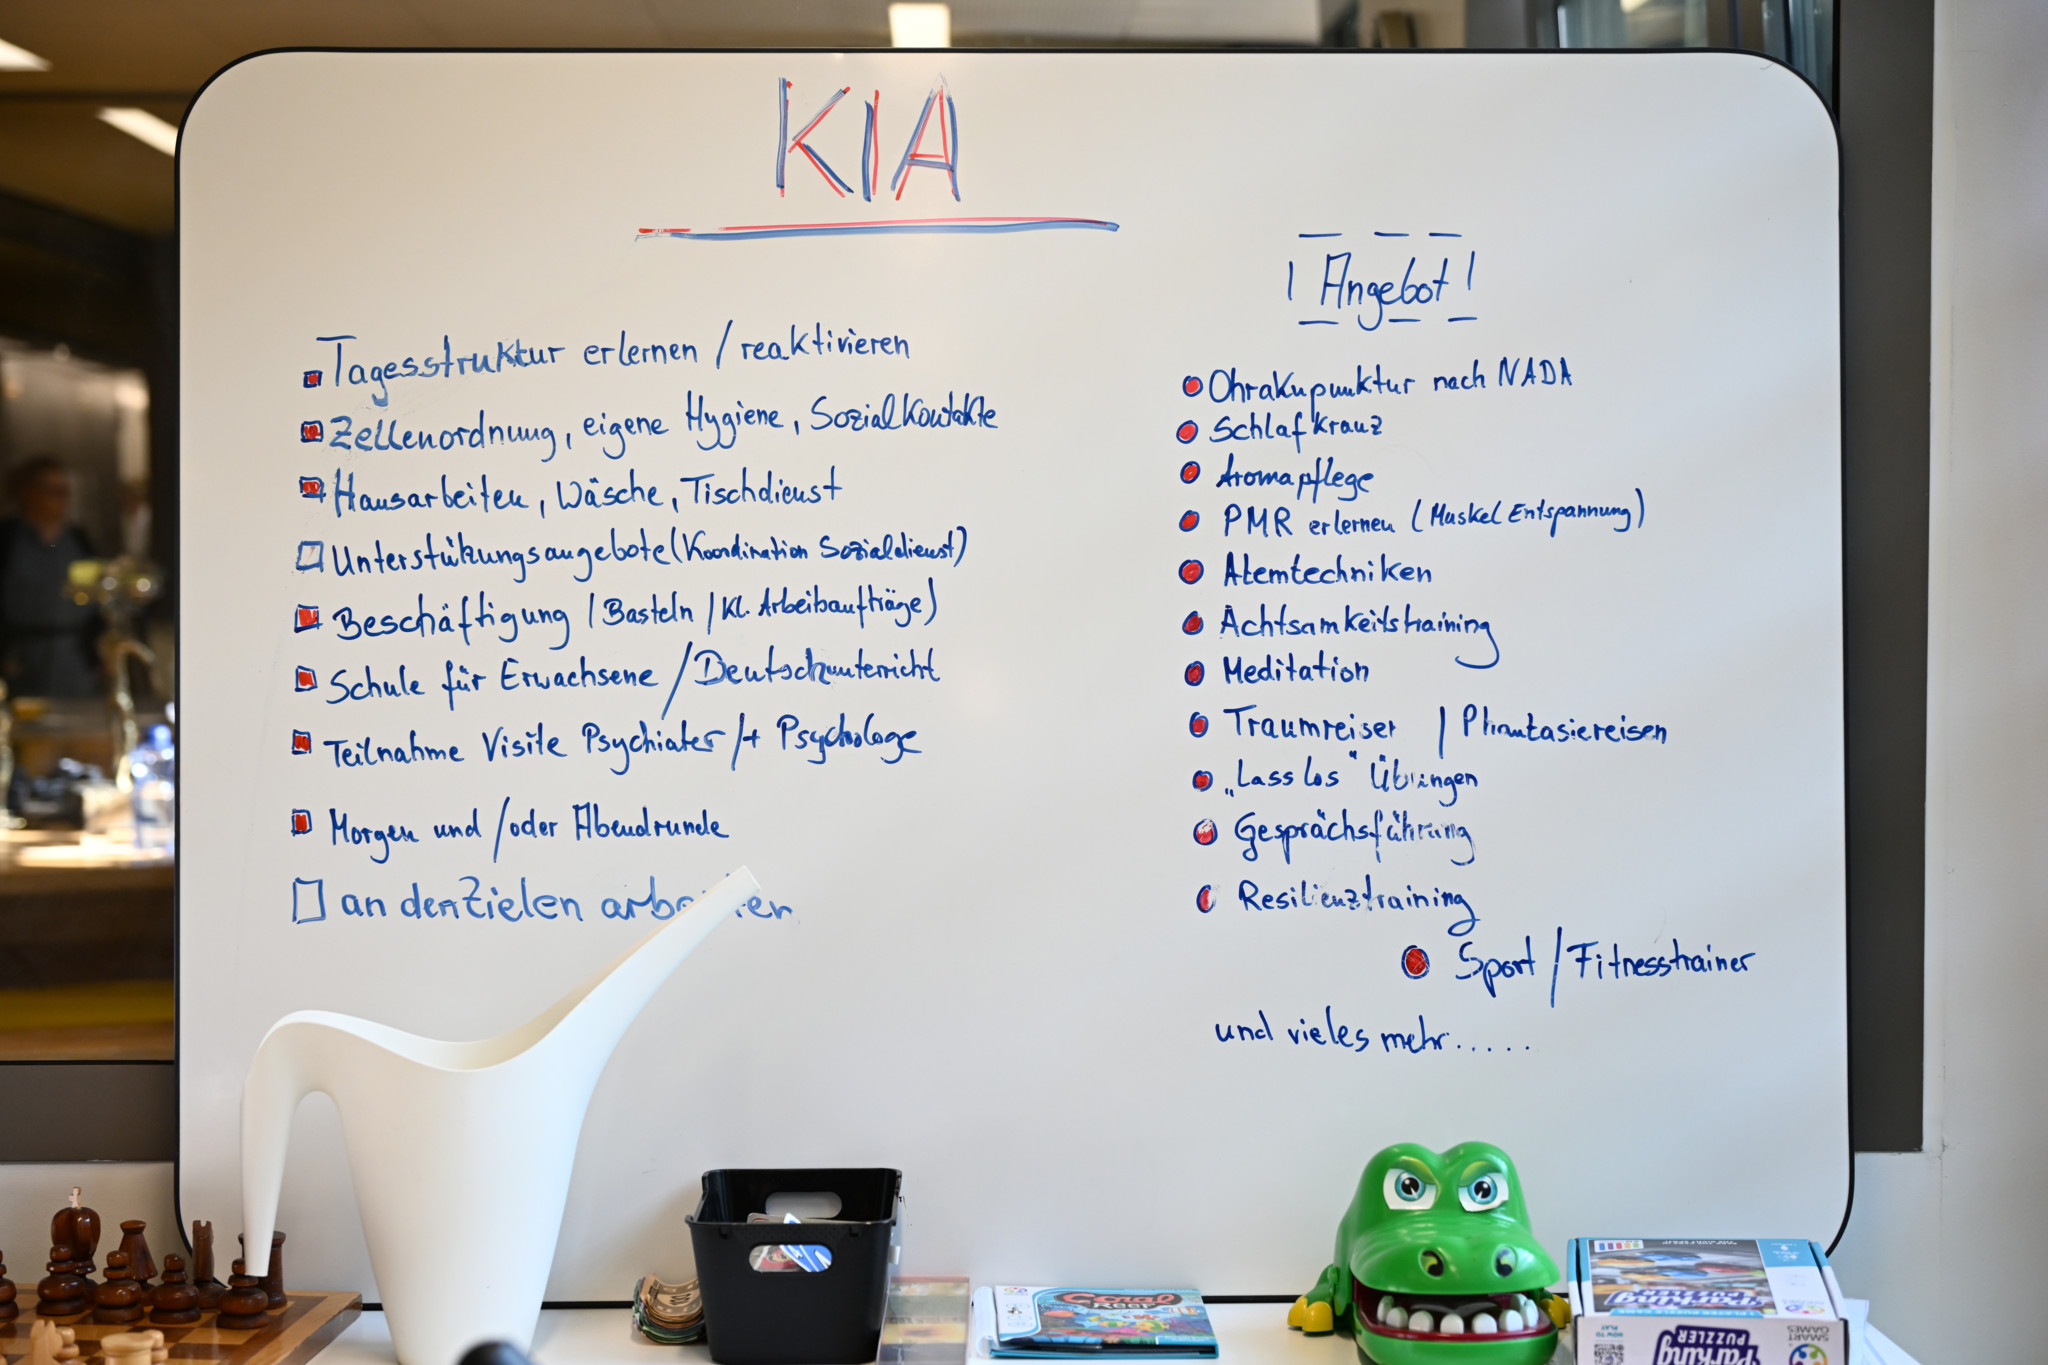 KIA
Tagesstruktur erlernen / reaktivieren
Zellenordnung, eigene Hygiene, Sozialkontakte
Hausarbeiten, Wäsche, Tischdienst
Unterstützungsangebote (Koordination Sozialdienst)
Beschäftigung (Basteln / Kl. Arbeitsaufträge)
Schule für Erwachsene / Deutschunterricht
Teilnahme Visite Psychiater /+ Psychologe
Morgen und / oder Abendrunde
an den Zielen
! Angebot !
Ohrakupunktur nach NADA
Schlafkranz
Aromapflege
PMR erlernen (Muskel Entspannung)
Atemtechniken
Achtsamkeitstraining
Meditation
Traumreisen / Phantasiereisen
„Lass los" Übungen
Gesprächsführung
Resilienztraining
Sport / Fitnesstrainer
und vieles mehr.....
Coral
REEF
Parking
PUZZLER
Parking
PUZZLER
SMART
GAMES
HOW TO
PLAY